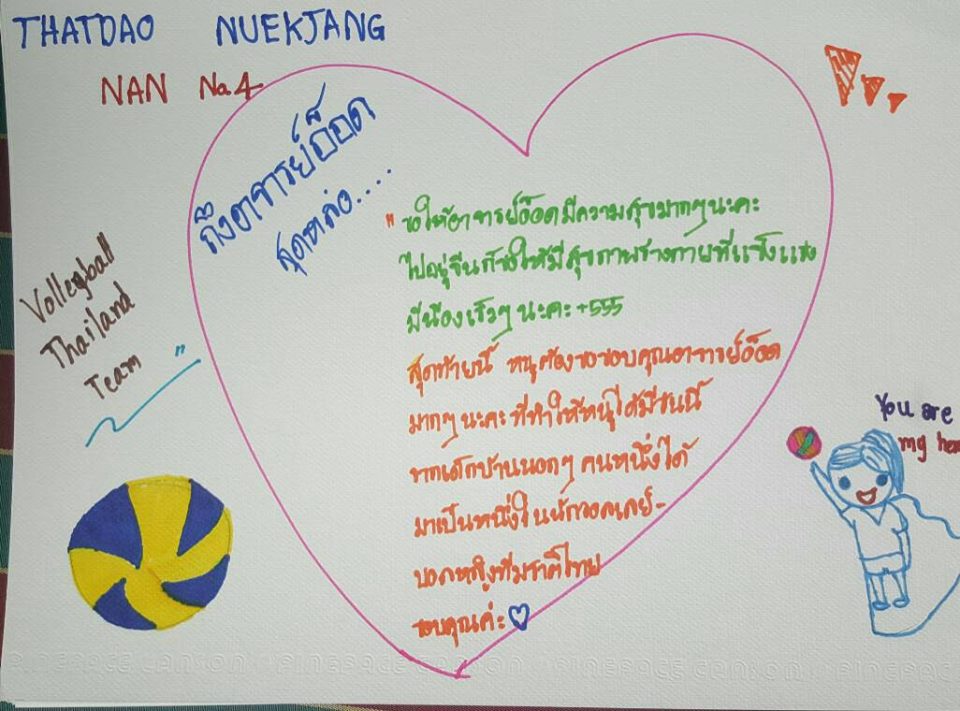 THATDAO NUEKJANG
NAN No.4
ถึงอาจารย์อ๊อด
สุดหล่อ....
Volleyball
Thailand
Team "
" ขอให้อาจารย์อ๊อดมีความสุขมากๆนะคะ
ไปอยู่จีนก็ขอให้มีสุขภาพร่างกายที่แข็งแรง
มีน้องเร็วๆ นะคะ +555
สุดท้ายนี้ หนูต้องขอขอบคุณอาจารย์อ๊อด
มากๆ นะคะ ที่ทำให้หนูได้มีวันนี้
จากเด็กบ้านนอกๆ คนหนึ่งได้
มาเป็นหนึ่งในนักวอลเลย์-
บอลหญิงทีมชาติไทย
ขอบคุณค่ะ ♡
You are
my